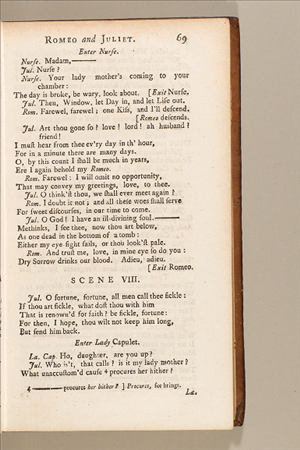 ROMEO and JULIET. 69
Enter Nurse.
Nurse. Madam,———
Jul. Nurse?
Nurse. Your lady mother's coming to your
chamber:
The day is broke, be wary, look about. [Exit Nurse.
Jul. Then, Window, let Day in, and let Life out.
Rom. Farewel, farewel; one Kiss, and I'll descend.
[Romeo descends.
Jul. Art thou gone so? love! lord! ah husband!
friend!
I must hear from thee ev'ry day in th' hour,
For in a minute there are many days.
O, by this count I shall be much in years,
Ere I again behold my Romeo.
Rom. Farewel: I will omit no opportunity,
That may convey my greetings, love, to thee.
Jul. O think'st thou, we shall ever meet again?
Rom. I doubt it not; and all these woes shall serve
For sweet discourses, in our time to come.
Jul. O God! I have an ill-divining soul.———
Methinks, I see thee, now thou art below,
As one dead in the bottom of a tomb:
Either my eye sight fails, or thou look'st pale.
Rom. And trust me, love, in mine eye do you:
Dry Sorrow drinks our blood. Adieu, adieu.
[Exit Romeo.
SCENE VIII.
Jul. O fortune, fortune, all men call thee fickle:
If thou art fickle, what dost thou with him
That is renown'd for faith? be fickle, fortune:
For then, I hope, thou wilt not keep him long,
But send him back.
Enter Lady Capulet.
La. Cap. Ho, daughter, are you up?
Jul. Who is't, that calls? is it my lady mother?
What unaccustom'd cause 4 procures her hither?
4 ——— procures her hither? ] Procures, for brings.
La.